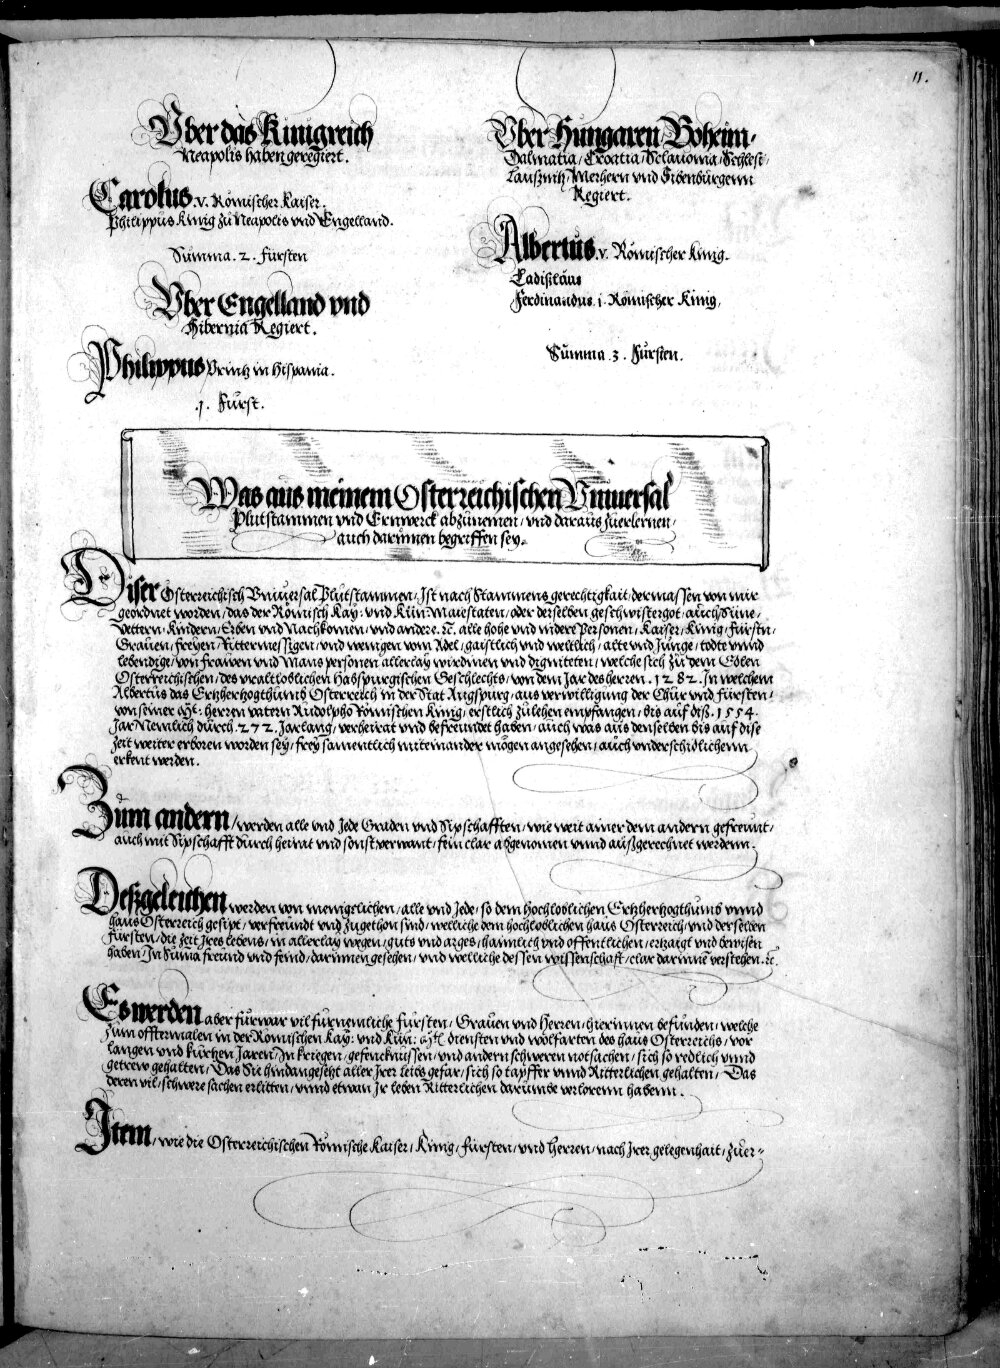 11.
Vber das Kinigreich
Neapolis haben geregiert.
Carolus .v. Römischer Kaiser.
Philippus Kinig zů Neapolis vnd Engelland.
Summa . 2 . fürsten
Vber Engelland vnd
Hibernia Regiert.
Philippus Printz in Hispania.
.1. Fürst.
Vber Hungaren, Boheim,
Dalmatia, Croatia, Sclauonia, Schlesi,
Lausznitz, Merhern vnd Sibenbürgenn
Regiert.
Albertus .v. Römischer Kinig.
Ladislaus
Ferdinandus .i. Römischer Kinig,
Summa . 3 . Fürsten.
Was aus meinem Osterreichischen Vniuersal
Plutstammen vnd Ernwerck abzůnemen, vnd daraus zůerlernen,
auch darinnen begriffen sey.
Diser Osterreichisch Vniuersal Plutstammen, Ist nach Stammens gerechtigkait dermassen von mir
geordnet worden, das der Römisch Kay: vnd Kün: Maiestaten, oder derselben geschwistergot, auch Süne,
Vettern, Kindern, Erben vnd Nachkomen, vnd andere. rc. alle hohe vnd nidere Personen, Kaiser, Kinig, fürstn,
Grauen, freyen, Rittermessigen, vnd wenigen vom Adel, gaistlich vnd weltlich, alte vnd Junge, todte vnnd
lebendige, von frawen vnd Mans personen allerlay wirdinen vnd digniteten, welche sich zů dem Edlen
Osterreichischen, des vraltloblichen Habspurgischen Geschlechts, von dem Jar des herren . 1282. In welchem
Albertus das Ertzhertzogthumb Osterreich in der Stat Augspurg, aus verwilligung der Chür vnd fürsten,
von seiner Mt: herren vatern Rudolpho Römischen Kinig, erstlich zůlehen empfangen, bis auf diß. 1554.
Jar Nemlich durch .272. Jarlang, verheirat vnd befreundet haben, auch was aus denselben bis auf dise
Zeit weiter erboren worden sey, frey samentlich miteinander mögen angesehen, auch vnderschidlichenn
erkent werden.
Zum andern, werden alle vnd Jede Graden vnd Sipschafften, wie weit ainer dem andern gefreunt,
auch mit Sipschafft durch heirat vnd sonst verwant, fein clar abgenomen vnnd außgerechnet werdenn.
Deßgeleichen werden von menigclichen, alle vnd Jede, so dem hochloblichen Ertzhertzogthumb vnnd
haus Osterreich gesipt, verfreundt vnd zugethon sind, welliche dem hochloblichen haus Osterreich, vnd derselben
fürsten, die zeit Jres lebens, in allerlay wegen, guts vnd arges, haimlich vnd offentlichen, ertzaigt vnd bewisen
haben, In Suma freund vnd feind, darinnen gesehen, vnd welliche dessen wissenschaft, clar darinnē verstehen. rc.
Es werden aber fürwar vil fürnemliche fürsten, Grauen vnd Herren, hierinnen befunden, welche
zum offtermalen in der Römischen Kay: vnd Kün: Mt: diensten vnd wolfarten des haus Osterreichs, vor
langen vnd kurtzen Jaren, In kriegen, gefencknussen, vnd andern schweren notsachen, sich so redlich vnnd
getrew gehalten, Das Sie hindangesetzt aller Jrer leibs gefar, sich so tapffer vnnd Ritterlichen gehalten, Das
deren vil, schwere sachen erlitten, vnnd etwan Jr leben Ritterlichen darumbe verlorenn habenn.
Item, wie die Osterreichischen Römische Kaiser, Kinig, fürsten, vnd herren, nach Jrer gelegenhait, zůer-